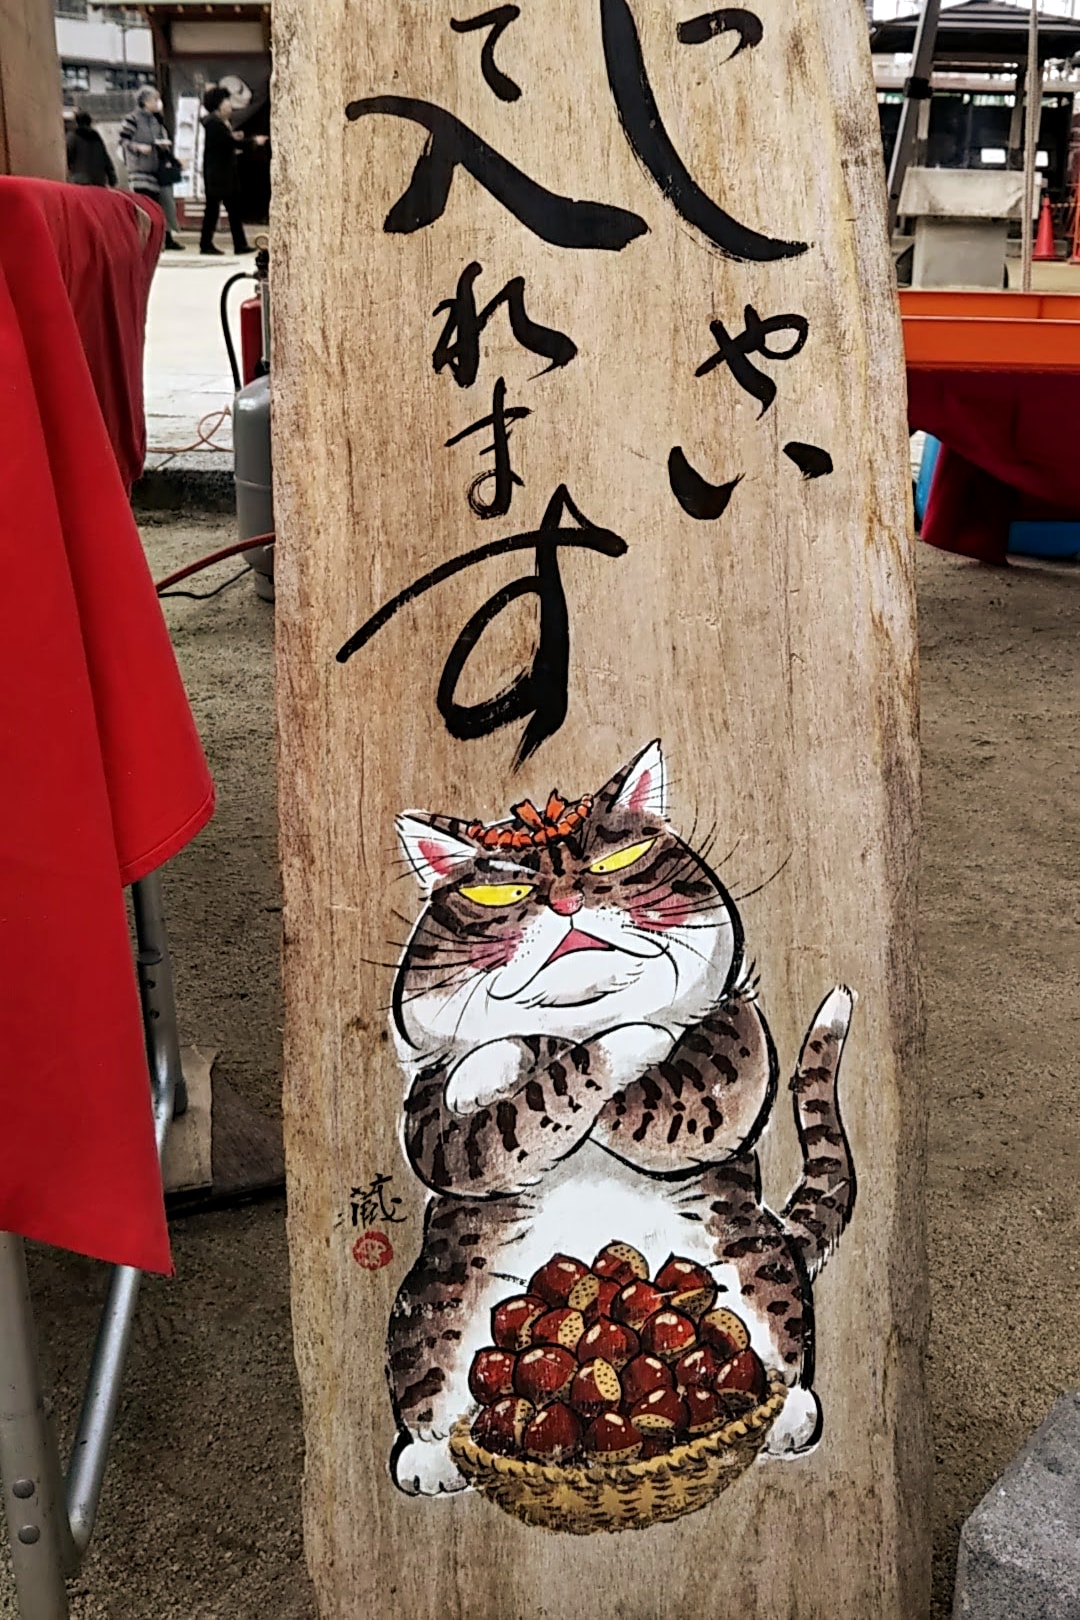 っしゃい
て入れます
蔵